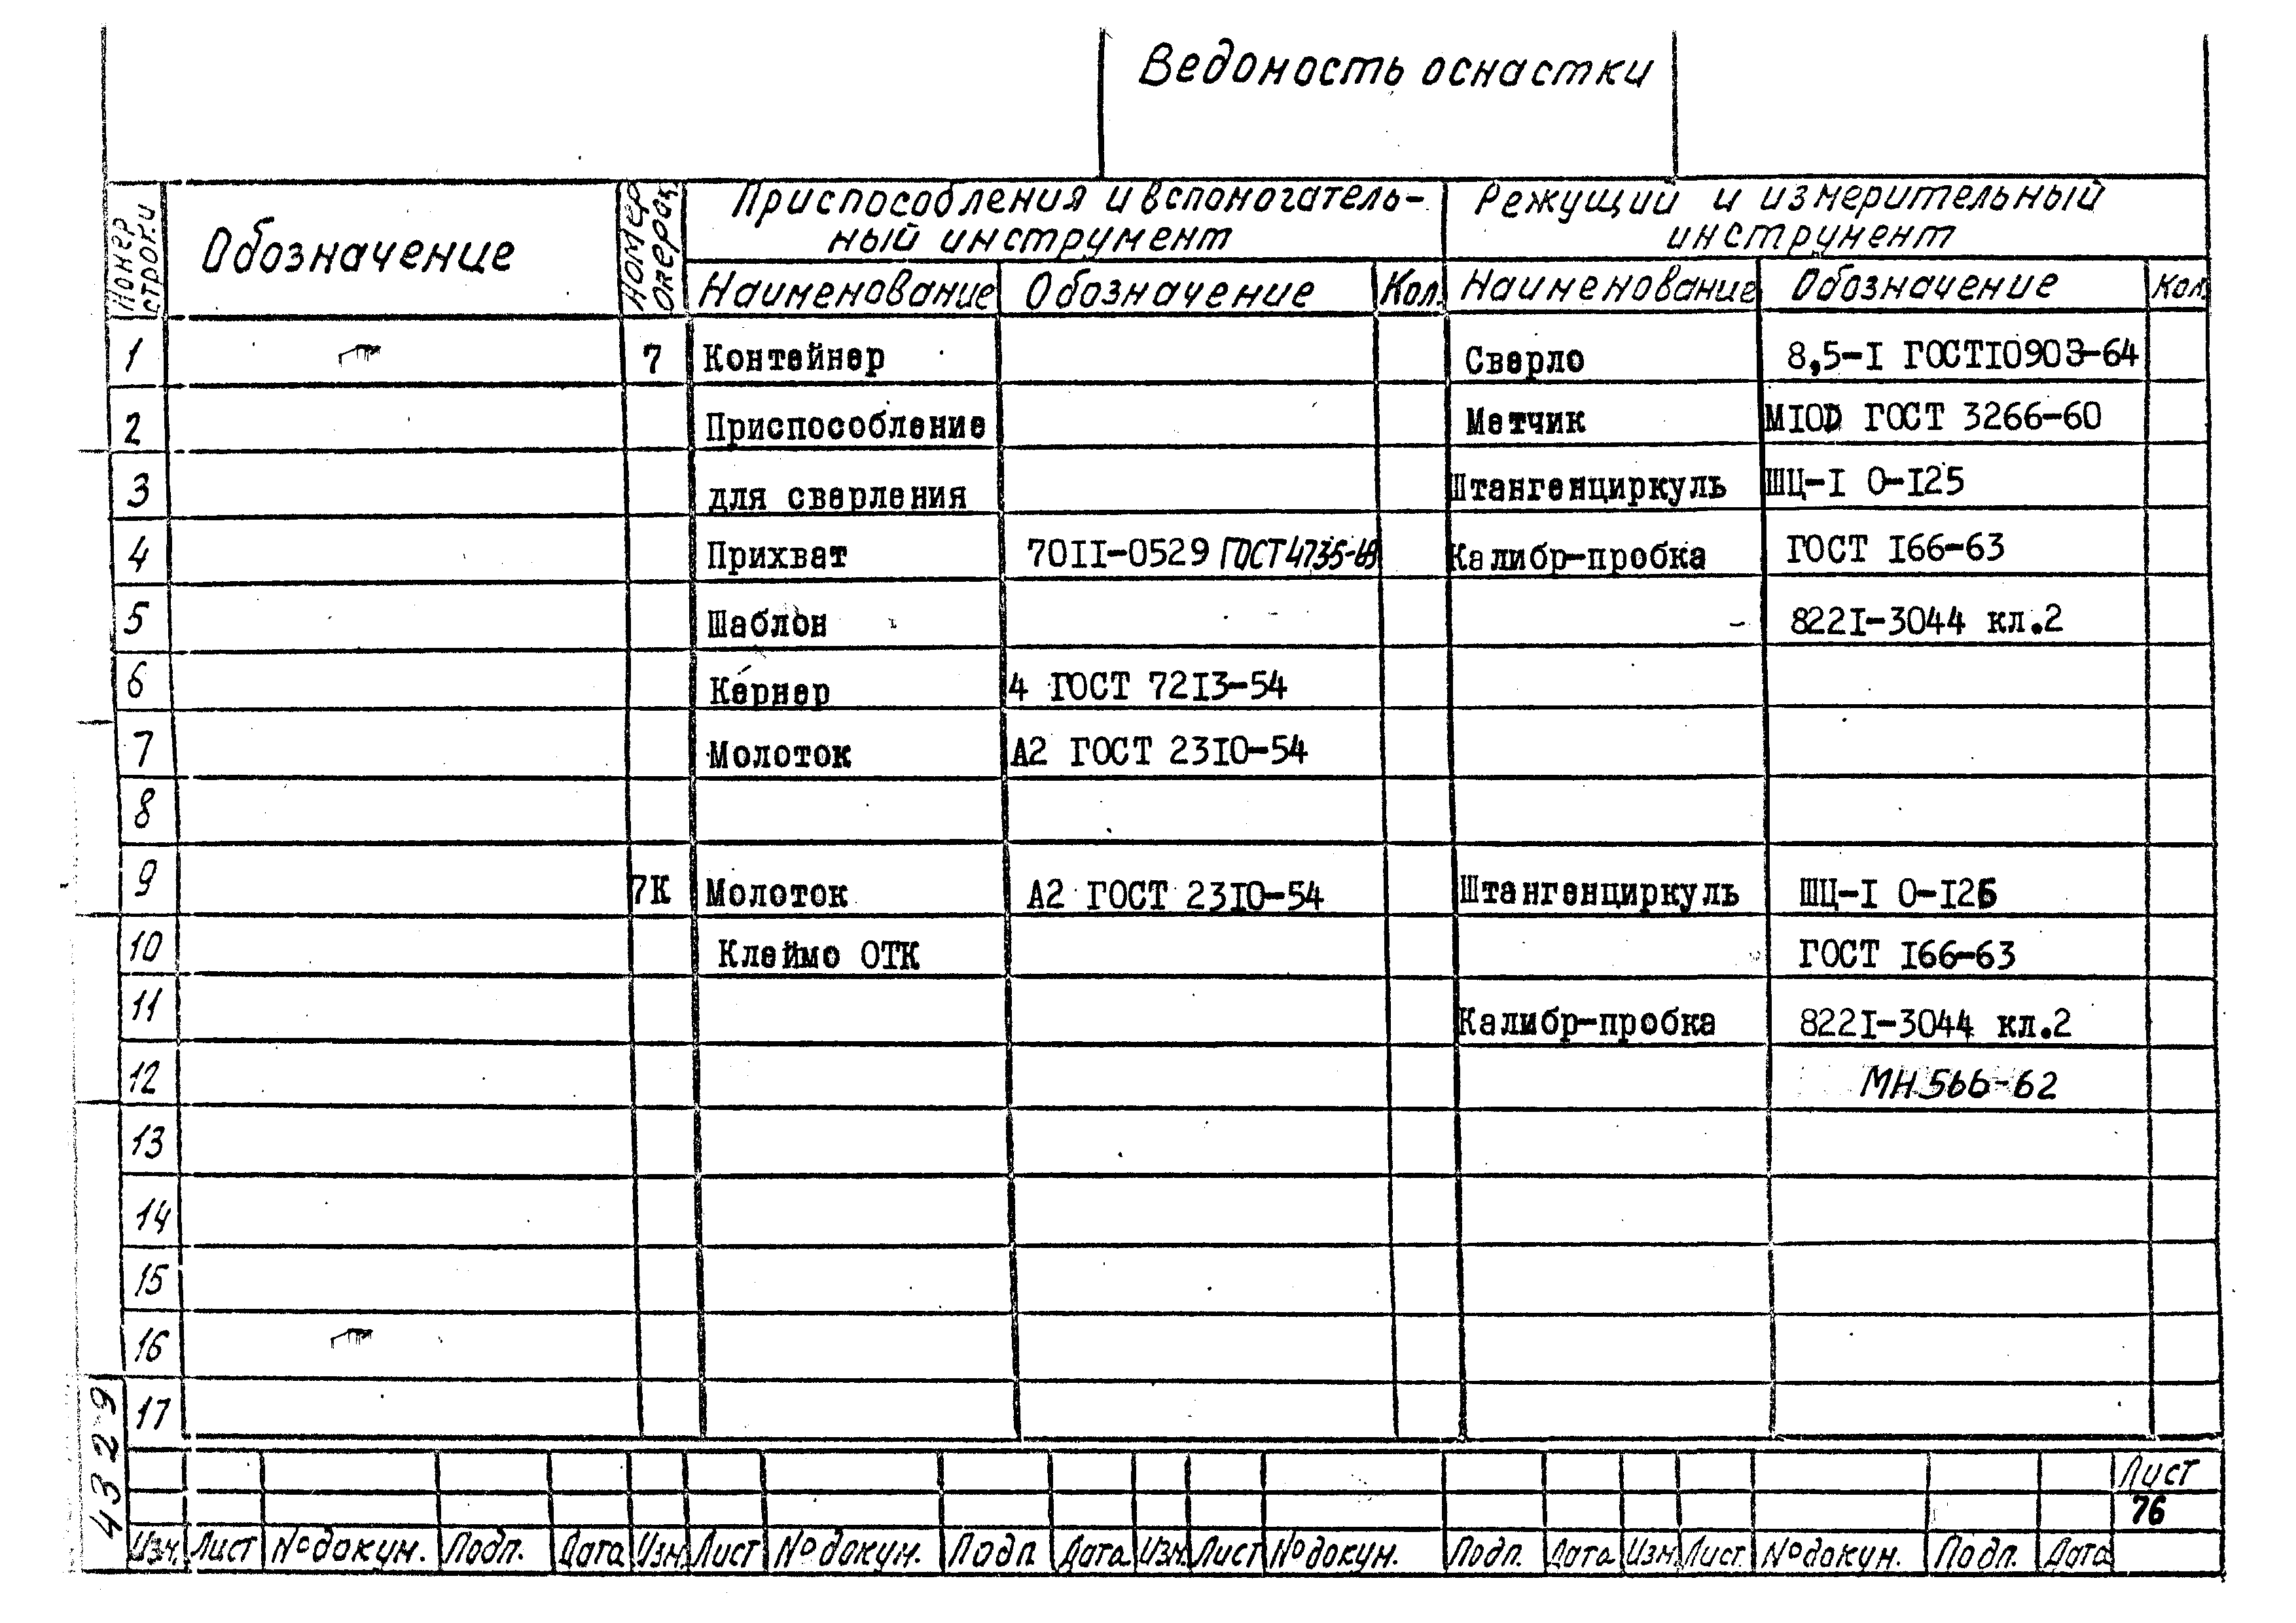 Ведомость оснастки
Номер строки
Обозначение
Номер операц.
Приспособления и вспомогатель-
ный инструмент
Режущий и измерительный
инструмент
Наименование Обозначение Кол. Наименование Обозначение Кол.
1 7 Контейнер Сверло 8,5-I ГОСТ10903-64
2 Приспособление Метчик М10D ГОСТ 3266-60
3 для сверления Штангенциркуль ШЦ-I 0-125
4 Прихват 7011-0529 ГОСТ 4735-69 Калибр-пробка ГОСТ 166-63
5 Шаблон 8221-3044 кл.2
6 Кернер 4 ГОСТ 7213-54
7 Молоток А2 ГОСТ 2310-54
8
9 7К Молоток А2 ГОСТ 2310-54 Штангенциркуль ШЦ-I 0-125
10 Клеймо ОТК ГОСТ 166-63
11 Калибр-пробка 8221-3044 кл.2
12 МН 566-62
13
14
15
16
17
4329
Лист
76
Изм. Лист № докум. Подп. Дата Изм. Лист № докум. Подп. Дата Изм. Лист № докум. Подп. Дата Изм. Лист № докум. Подп. Дата